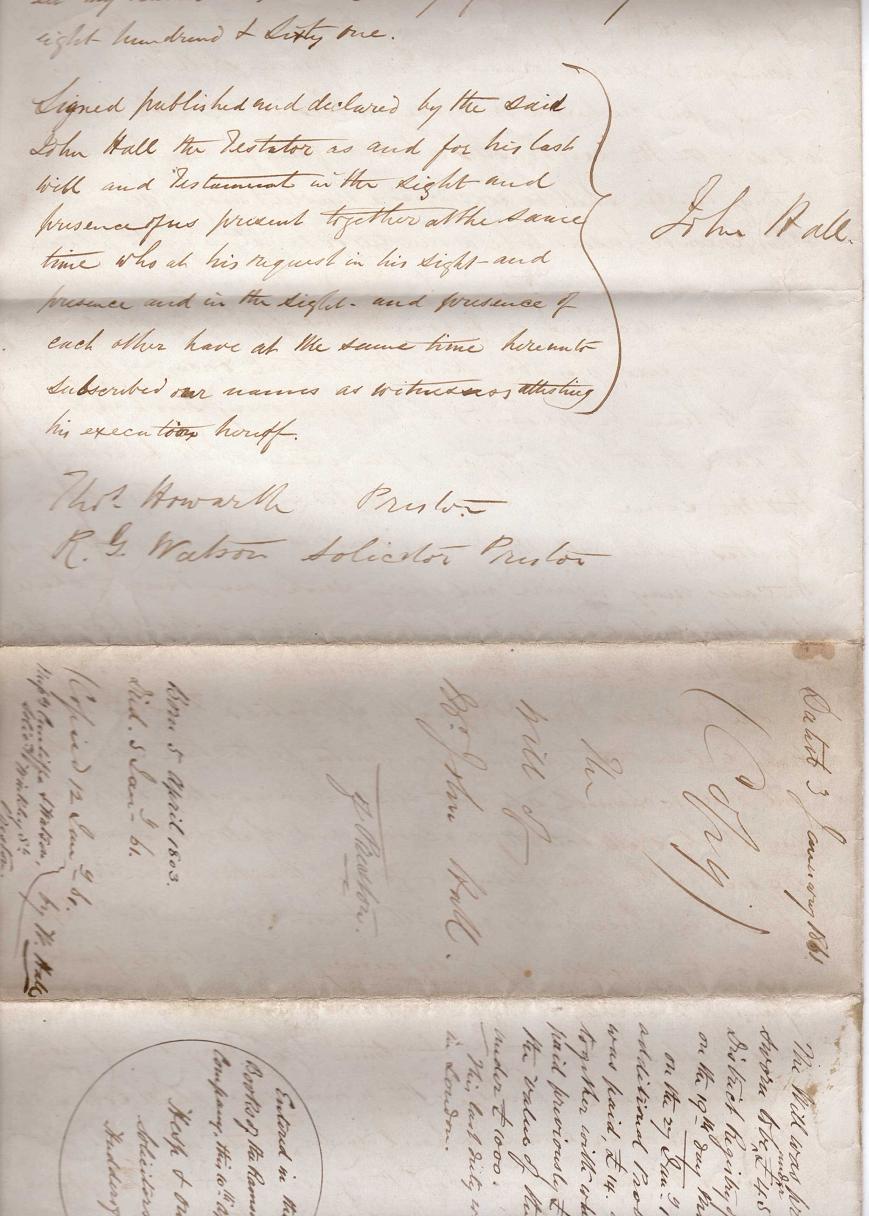 eight hundred & Sixty one.
Signed published and declared by the said
John Hall the Testator as and for his last
will and Testament in the sight and
presence of us present together at the same
time who at his request in his sight and
presence and in the sight and presence of
each other have at the same time hereunto
subscribed our names as witnesses attesting
his execution hereof.
John Hall.
Thos. Howarth Preston
R. G. Watson Solicitor Preston
Dated 3 January 1861.
(Copy)
The
Will of
Mr. John Hall.
of Preston.
Born 5 April 1803.
Died. 5 Jany. 61.
Copied 12 Jany. 61.
by W. Hall
Winkley St.
Preston.
The Will was
Sworn to be under £45
District Registry
on the 19th day
on the 29 Jany.
additional
was paid, £14.
together with
paid previously £
the value of the
under £1000.
This last duty
in London.
Entered in the
Books of the
Company, this
Solicitors